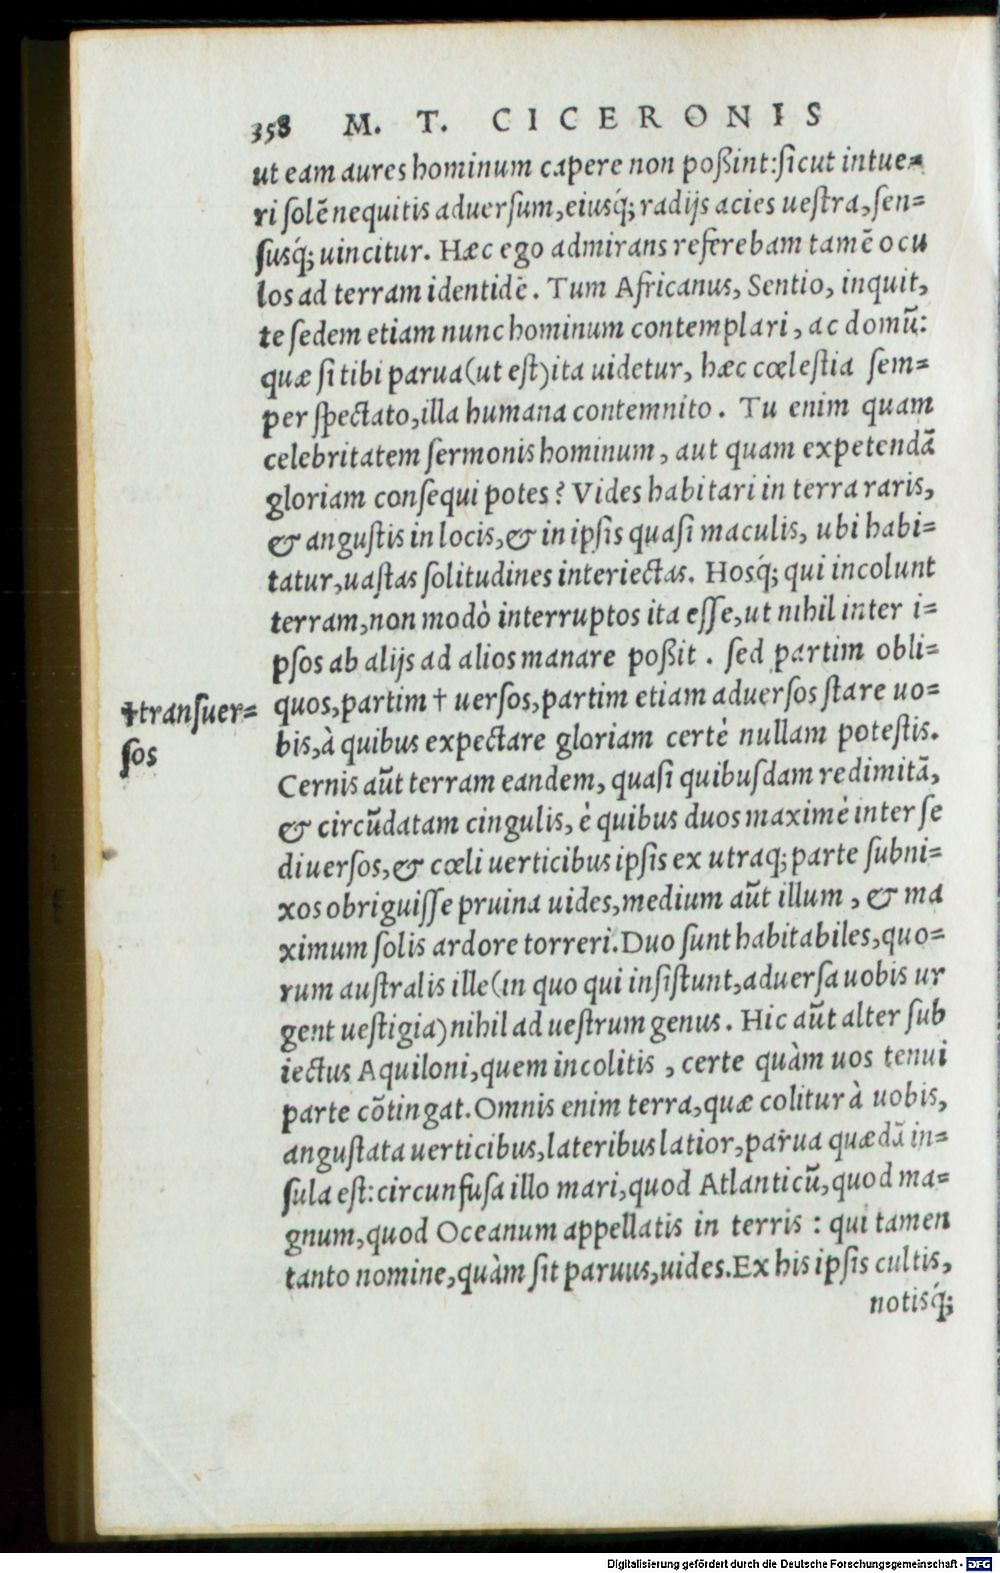 358 M. T. CICERONIS
ut eam aures hominum capere non poßint:ſicut intue=
ri ſolē nequitis aduerſum,eiusq́; radijs acies ueſtra,ſen=
ſusq́; uincitur. Hæc ego admirans referebam tamē ocu
los ad terram identidē. Tum Africanus, Sentio, inquit,
te ſedem etiam nunc hominum contemplari, ac domū:
quæ ſi tibi parua(ut eſt)ita uidetur, hæc cœleſtia ſem=
per ſpectato,illa humana contemnito. Tu enim quam
celebritatem ſermonis hominum, aut quam expetendā
gloriam conſequi potes? Vides habitari in terra raris,
& anguſtis in locis,& in ipſis quaſi maculis, ubi habi=
tatur,uaſtas ſolitudines interiectas. Hosq́; qui incolunt
terram,non modò interruptos ita eſſe,ut nihil inter i=
pſos ab alijs ad alios manare poßit. ſed partim obli=
quos,partim † uerſos,partim etiam aduerſos ſtare uo=
†tranſuer=
ſos
bis,à quibus expectare gloriam certè nullam poteſtis.
Cernis aūt terram eandem, quaſi quibuſdam redimitā,
& circūdatam cingulis, è quibus duos maximè inter ſe
diuerſos,& cœli uerticibus ipſis ex utraq; parte ſubni=
xos obriguiſſe pruina uides,medium aūt illum, & ma
ximum ſolis ardore torreri.Duo ſunt habitabiles,quo=
rum auſtralis ille(in quo qui inſiſtunt,aduerſa uobis ur
gent ueſtigia)nihil ad ueſtrum genus. Hic aūt alter ſub
iectus Aquiloni,quem incolitis, certe quàm uos tenui
parte cōtingat.Omnis enim terra,quæ colitur à uobis,
anguſtata uerticibus,lateribus latior,parua quædā in=
ſula eſt:circunfuſa illo mari,quod Atlanticū,quod ma=
gnum,quod Oceanum appellatis in terris : qui tamen
tanto nomine,quàm ſit paruus,uides.Ex his ipſis cultis,
notisq́;
Digitalisierung gefördert durch die Deutsche Forschungsgemeinschaft - DFG